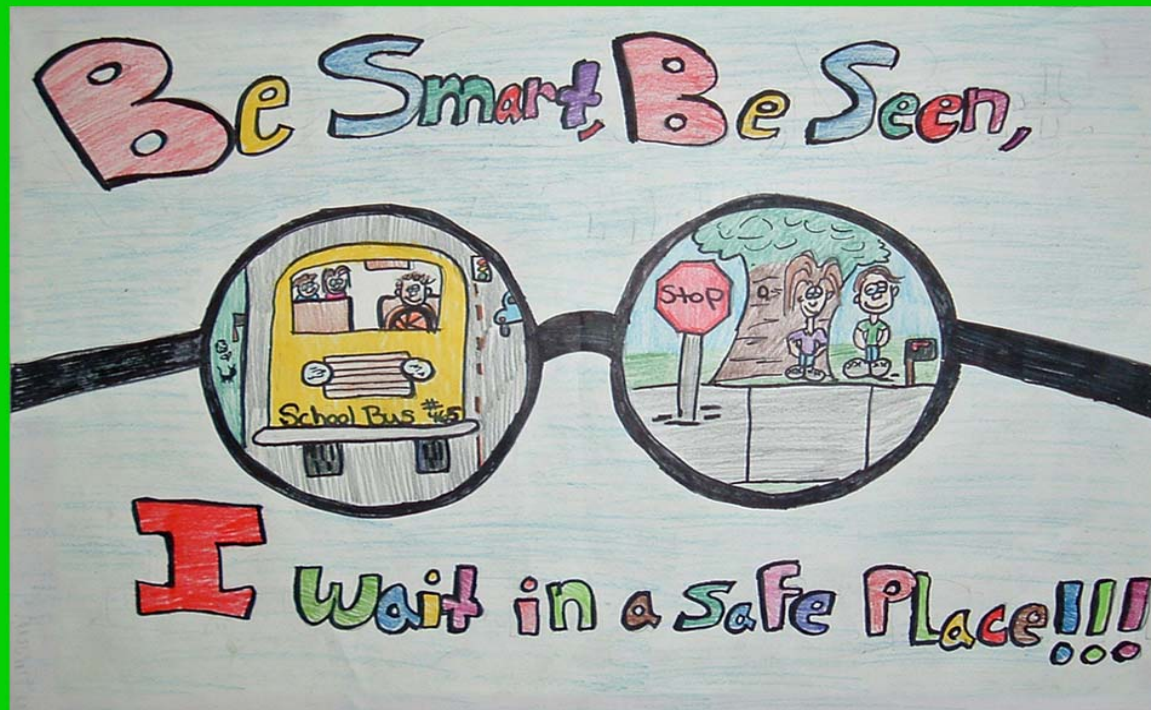 Be Smart, Be Seen,
Stop
School Bus #465
I Wait in a Safe Place!!!